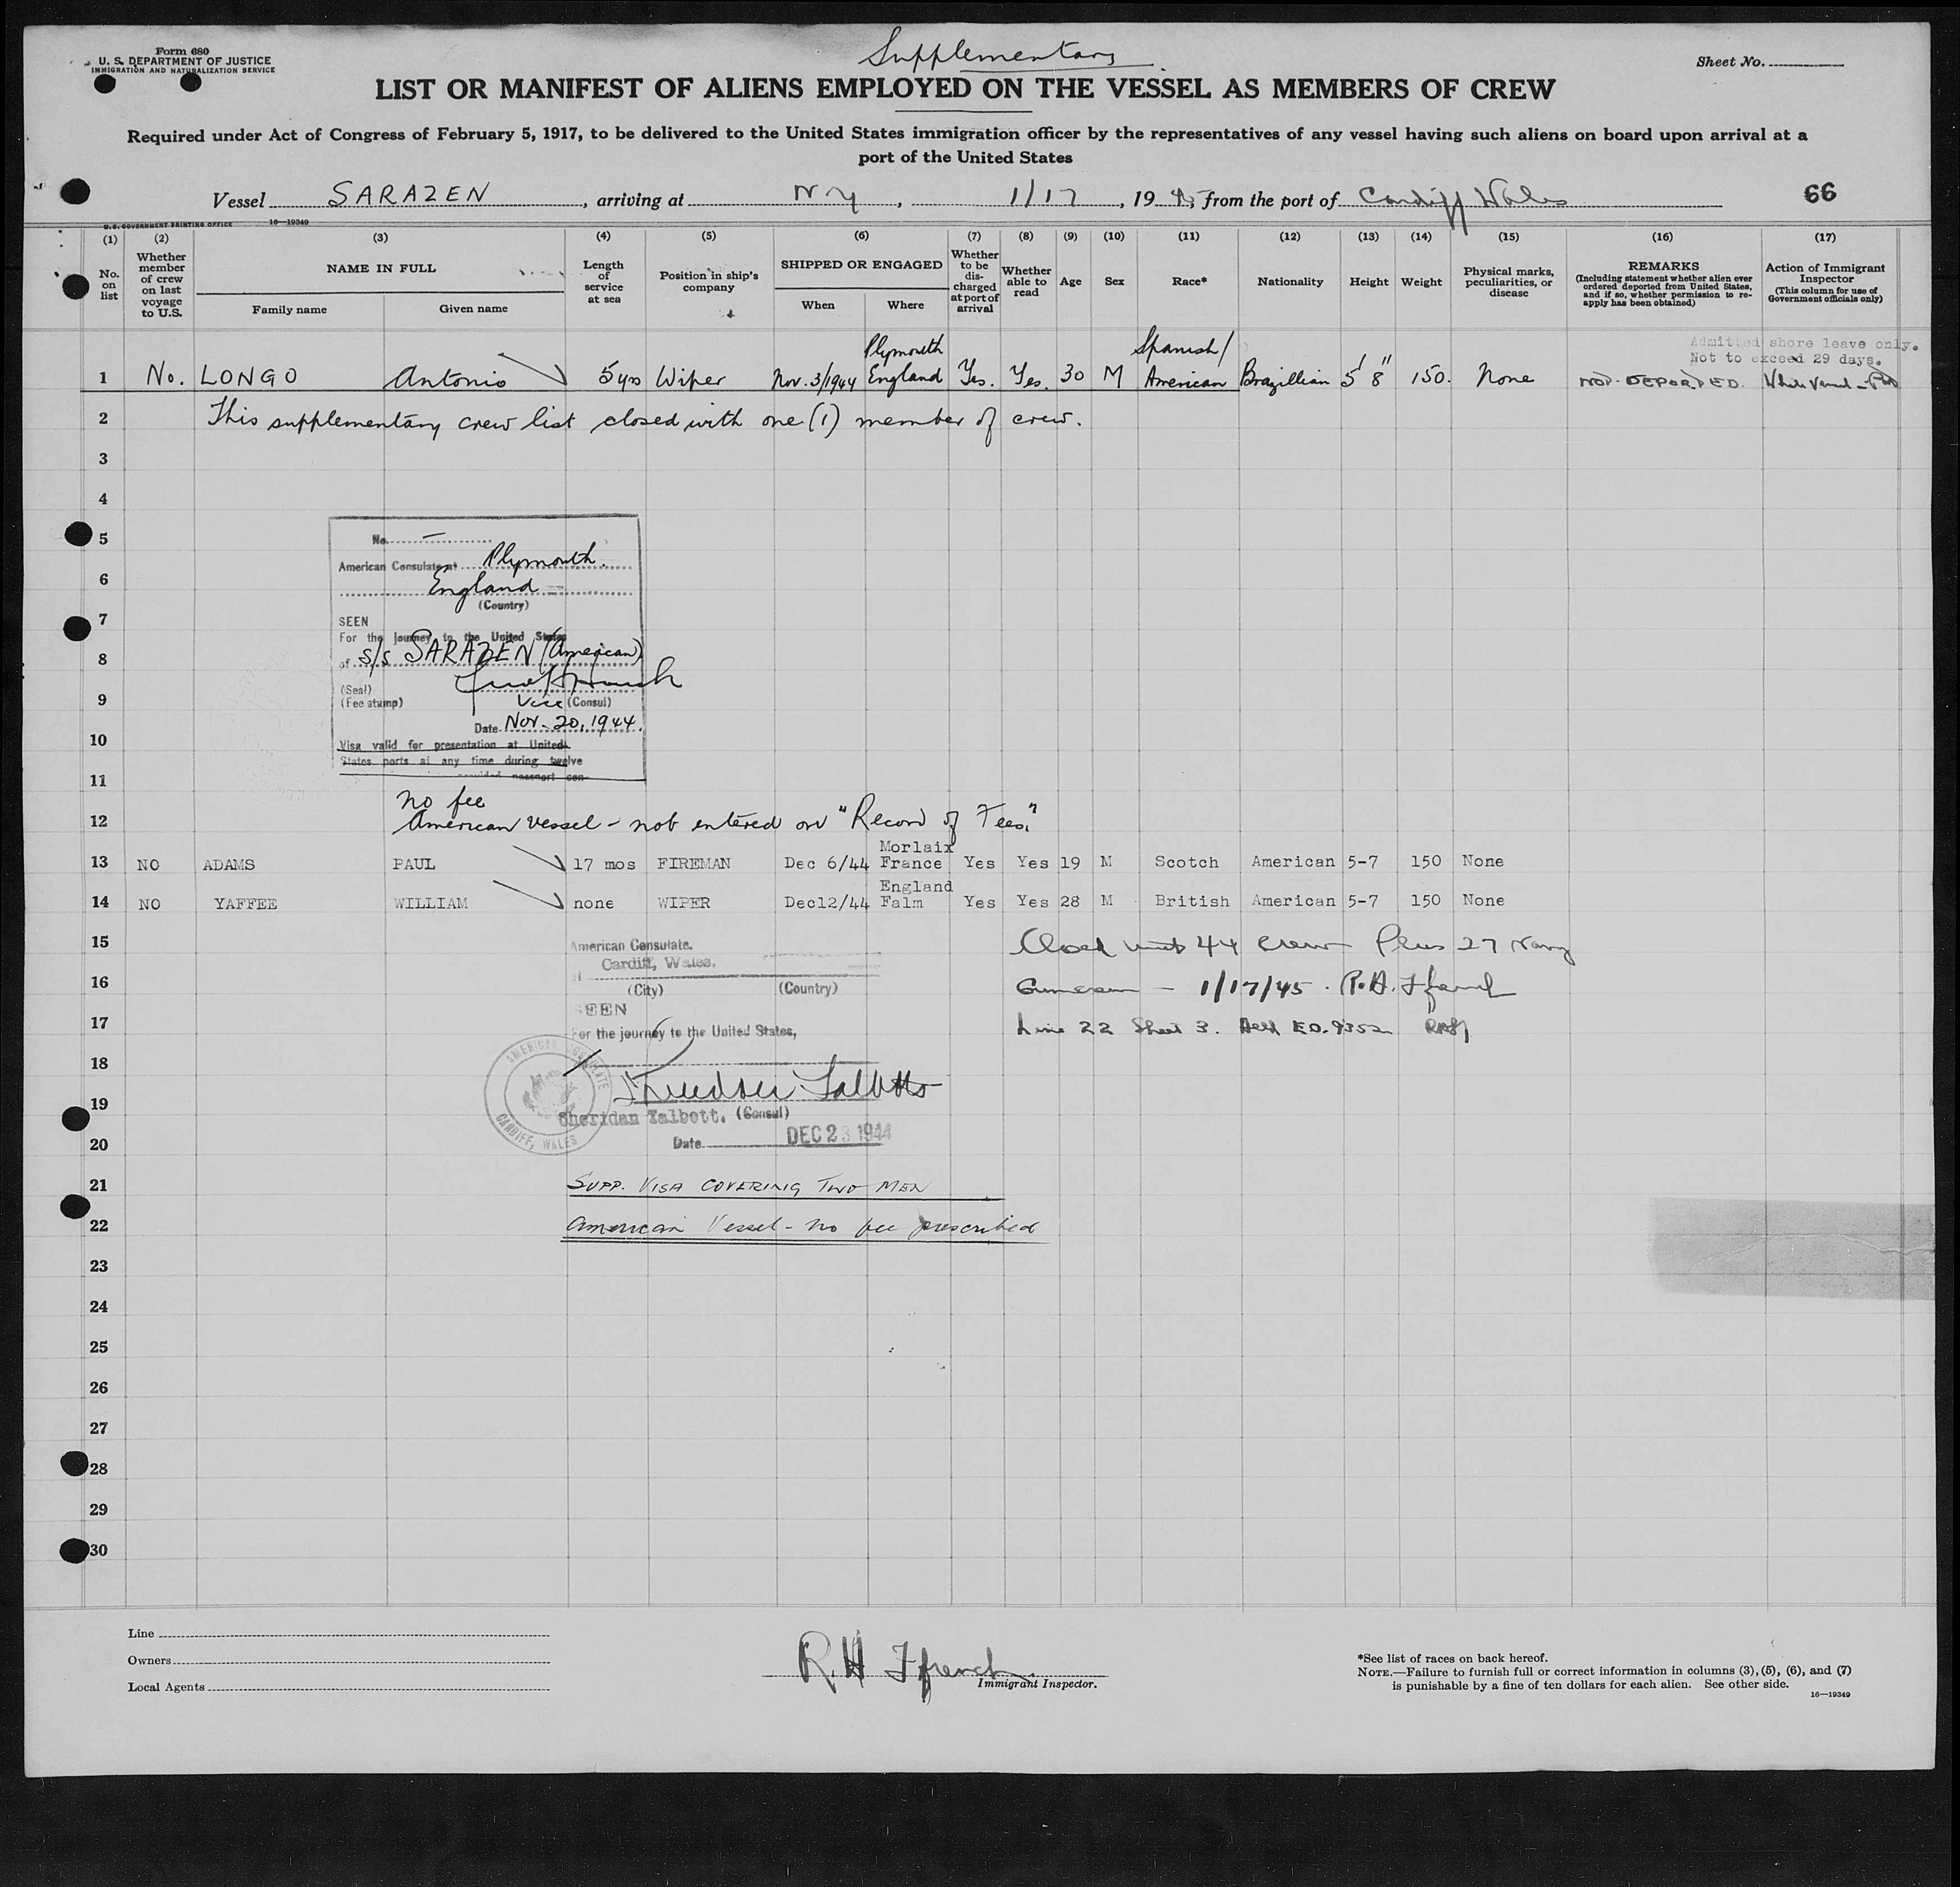 Form 680
U. S. DEPARTMENT OF JUSTICE
IMMIGRATION AND NATURALIZATION SERVICE
Supplementary
Sheet No.
LIST OR MANIFEST OF ALIENS EMPLOYED ON THE VESSEL AS MEMBERS OF CREW
Required under Act of Congress of February 5, 1917, to be delivered to the United States immigration officer by the representatives of any vessel having such aliens on board upon arrival at a
port of the United States
Vessel SARAZEN, arriving at NY, 1/17, 1945, from the port of Cardiff Wales
66
U.S. GOVERNMENT PRINTING OFFICE 16—19349
(1) (2) (3) (4) (5) (6) (7) (8) (9) (10) (11) (12) (13) (14) (15) (16) (17)
No. on list
Whether member of crew on last voyage to U.S.
NAME IN FULL
Family name
Given name
Length of service at sea
Position in ship's company
SHIPPED OR ENGAGED
When
Where
Whether to be discharged at port of arrival
Whether able to read
Age
Sex
Race*
Nationality
Height
Weight
Physical marks, peculiarities, or disease
REMARKS
(Including statement whether alien ever ordered deported from United States, and if so, whether permission to re-apply has been obtained)
Action of Immigrant Inspector
(This column for use of Government officials only)
Admitted shore leave only.
Not to exceed 29 days.
1 No. LONGO Antonio 5 yrs Wiper Nov. 3/1944 Plymouth England Yes. Yes. 30 M Spanish/ American Brazillian 5' 8" 150. None NOT DEPORTED.
2 This supplementary crew list closed with one (1) member of crew.
3
4
5
6
7
8
9
10
11
No.
American Consulate at Plymouth.
England
(Country)
SEEN
For the journey to the United States
of s/s SARAZEN (American)
(Seal)
(Fee stamp) Vice (Consul)
Date Nov. 20, 1944.
Visa valid for presentation at United
States ports at any time during twelve
provided passport con-
no fee
12 American vessel - not entered on "Record of Fees."
13 NO ADAMS PAUL 17 mos FIREMAN Dec 6/44 Morlaix France Yes Yes 19 M Scotch American 5-7 150 None
14 NO YAFFEE WILLIAM none WIPER Dec12/44 England Falm Yes Yes 28 M British American 5-7 150 None
15 Closed with 44 crew Plus 27 Navy
16 Gunners — 1/17/45. R.H. Ffrench
17 Line 22 Sheet 3. Held E.O. 9352
18
19
20
American Consulate.
Cardiff, Wales.
(City) (Country)
SEEN
For the journey to the United States,
AMERICAN CONSULATE
CARDIFF, WALES
Sheridan Talbott
Sheridan Talbott. (Consul)
Date DEC 23 1944
21 SUPP. VISA COVERING TWO MEN
22 American Vessel - no fee prescribed
23
24
25
26
27
28
29
30
Line
Owners
Local Agents
R.H Ffrench
Immigrant Inspector.
*See list of races on back hereof.
NOTE.—Failure to furnish full or correct information in columns (3), (5), (6), and (7)
is punishable by a fine of ten dollars for each alien. See other side.
16—19349